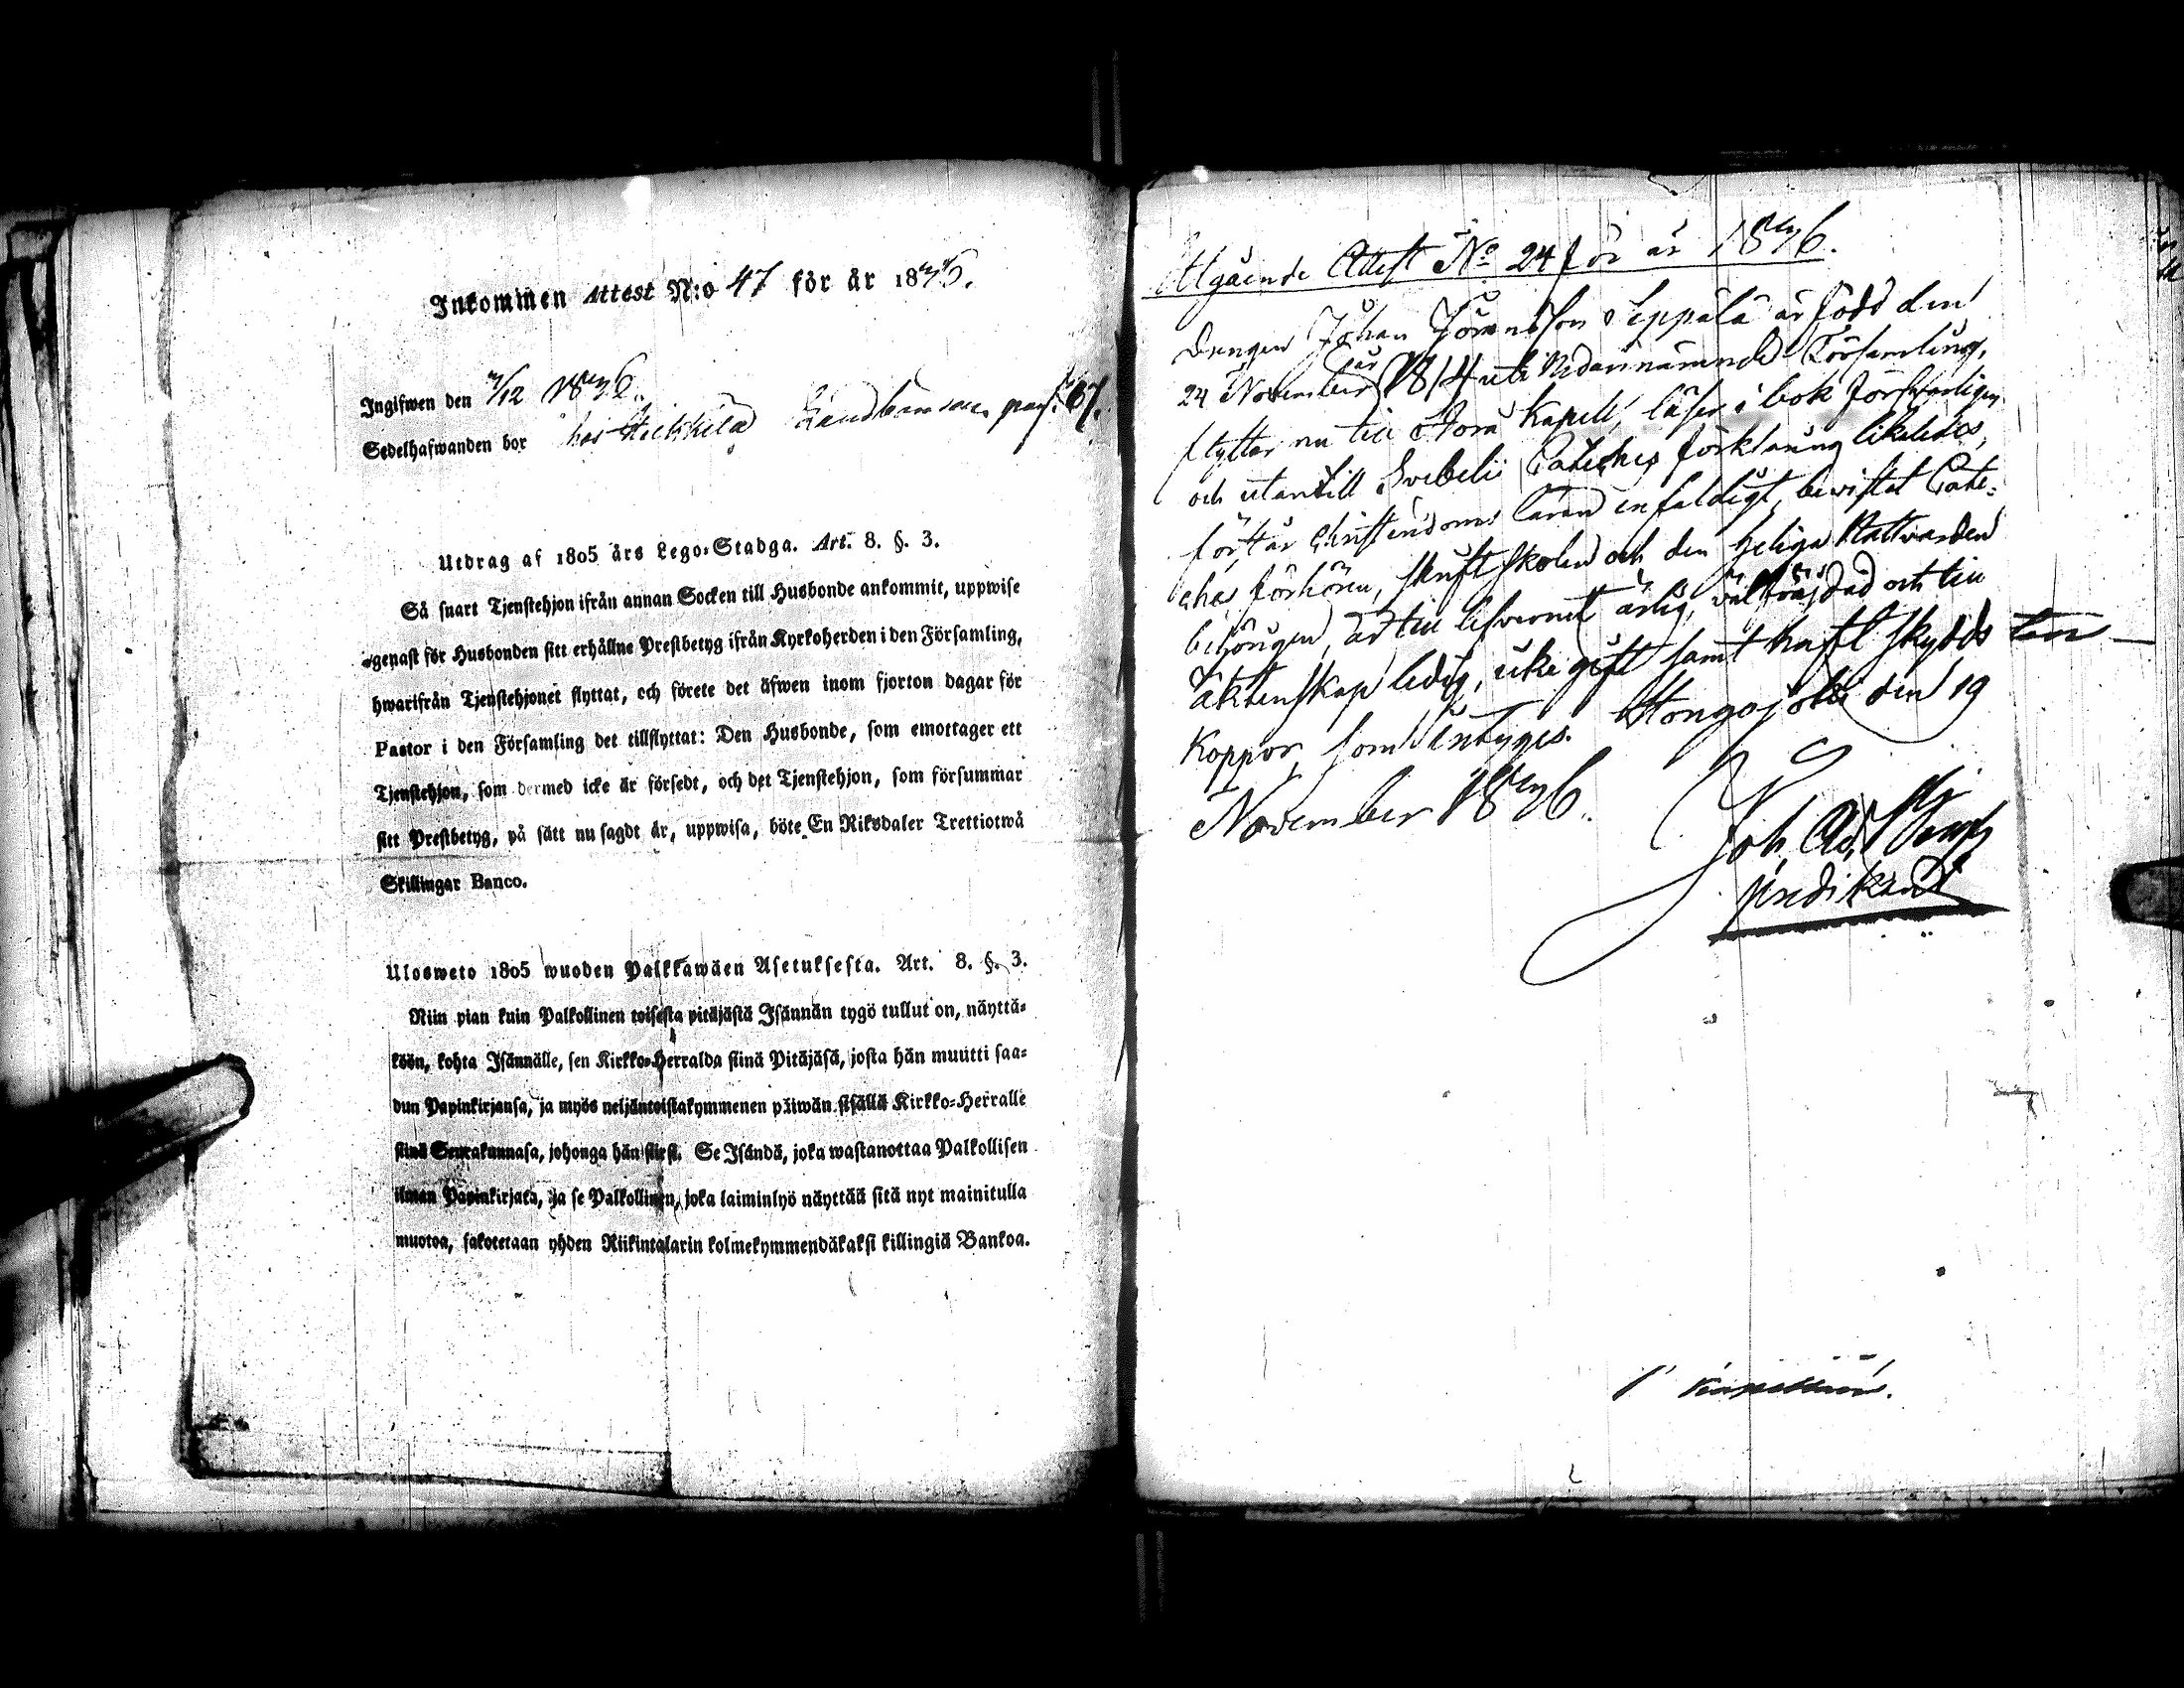 Inkommen Attest N:o 47 för år 1836.
Ingifwen den 7/12 1836.
Sedelhafwanden bor hos Heikkilä Landbonden pag. 67.
Utdrag af 1805 års Lego-Stadga. Art. 8. §. 3.
Så snart Tjenstehjon ifrån annan Socken till Husbonde ankommit, uppwise
genast för Husbonden sitt erhållne Prestbetyg ifrån Kyrkoherden i den Församling,
hwarifrån Tjenstehjonet flyttat, och förete det äfwen inom fjorton dagar för
Pastor i den Församling det tillflyttat: Den Husbonde, som emottager ett
Tjenstehjon, som dermed icke är försedt, och det Tjenstehjon, som försummar
sitt Prestbetyg, på sätt nu sagdt är, uppwisa, böte En Riksdaler Trettiotwå
Skillingar Banco.
Ulosweto 1805 wuoden Palkkawäen Asetuksesta. Art. 8. §. 3.
Niin pian kuin Palkollinen toisesta pitäjästä Isännän tygö tullut on, näyttä-
köön, kohta Isännälle, sen Kirkko-Herralda siinä Pitäjäsä, josta hän muutti saa-
dun Papinkirjansa, ja myös neljäntoistakymmenen päiwän sisällä Kirkko-Herralle
siinä Seurakunnasa, johonga hän siirsi. Se Isändä, joka wastanottaa Palkollisen
ilman Papinkirjata, ja se Palkollinen, joka laiminlyö näyttää sitä nyt mainitulla
muotoa, sakotetaan yhden Riikintalarin kolmekymmendäkaksi killingiä Bankoa.
Utgående Attest No 24 för år 1836.
Drengen Johan Jöransson Seppälä är född den
24 November år 1814 uti Nedannämnde Församling,
flyttar nu till Storå Kapell, läser i bok försvarligen
och utantill Svebelii Cateches förklaring likaledes,
förstår Christendoms läran enfaldigt, bevistat Cate-
ches förhören, skriftskolan och den heliga Nattvarden
behörigen, är till lefvernet ärlig, välfräjdad och till
äktenskap ledig, icke gift samt haft skydds
Koppor, som intygas. Hongojoki den 19
November 1836.
Joh. Ad.
predikant